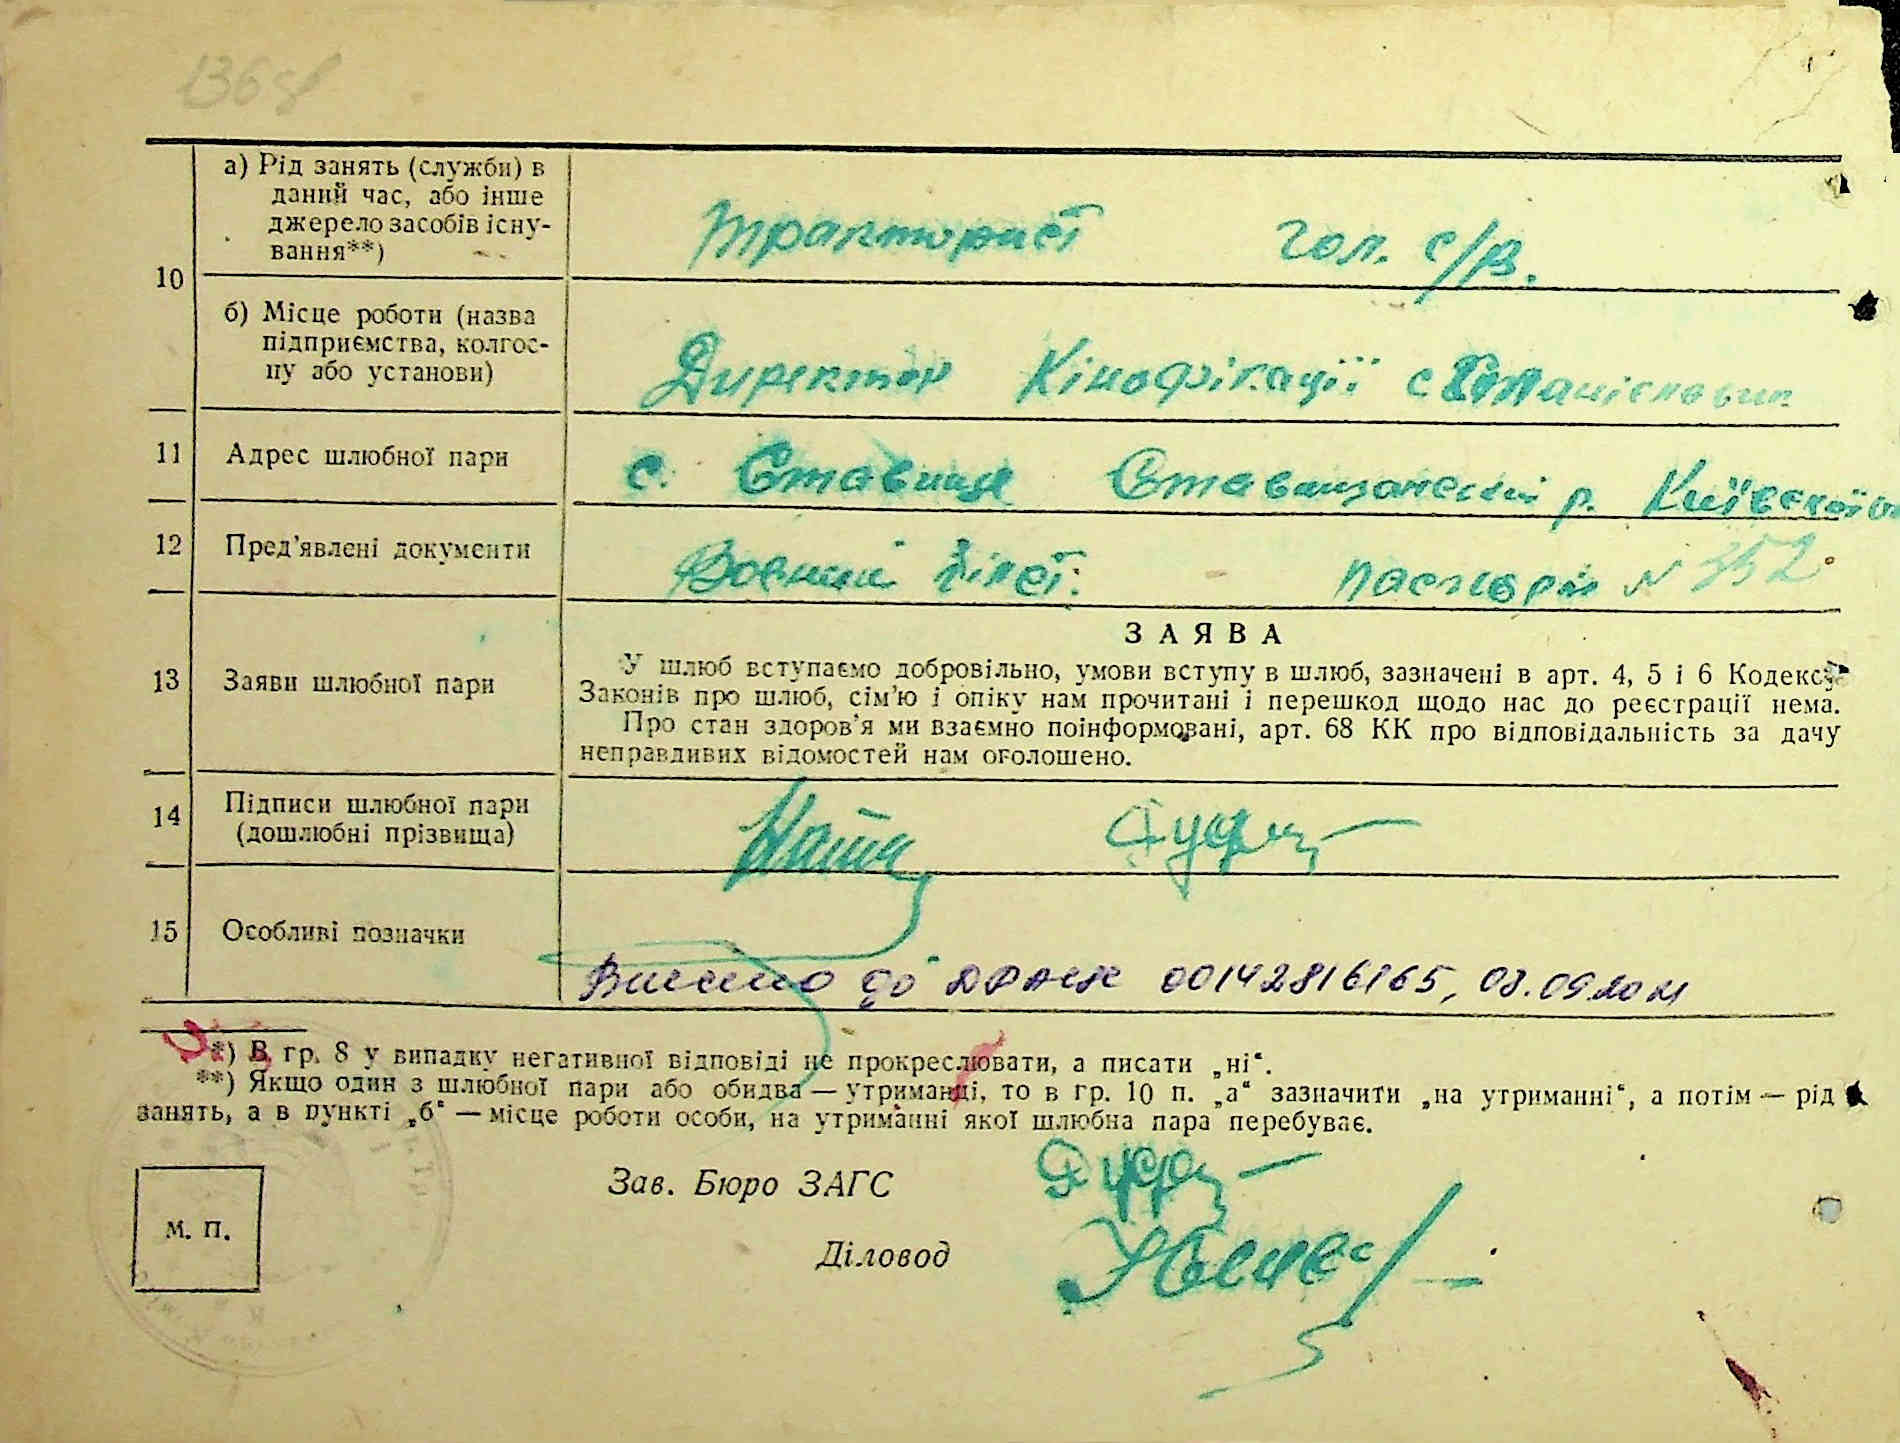 1368
а) Рід занять (служби) в
даний час, або інше
джерело засобів існу-
вання**)
Тракторист гол. с/р.
10
б) Місце роботи (назва
підприємства, колгос-
пу або установи)
Директор Кінофікації с
11 Адрес шлюбної пари
с. Ставище Ставищанський р. Київської
12 Пред'явлені документи
Воєнний білєт. паспорт № 352
13 Заяви шлюбної пари
ЗАЯВА
У шлюб вступаємо добровільно, умови вступу в шлюб, зазначені в арт. 4, 5 і 6 Кодексу
Законів про шлюб, сім'ю і опіку нам прочитані і перешкод щодо нас до реєстрації нема.
Про стан здоров'я ми взаємно поінформовані, арт. 68 КК про відповідальність за дачу
неправдивих відомостей нам оголошено.
14 Підписи шлюбної пари
(дошлюбні прізвища)
15 Особливі позначки
Внесено до ДРАЦС 00142816165, 03.09.20
*) В гр. 8 у випадку негативної відповіді не прокреслювати, а писати „ні“.
**) Якщо один з шлюбної пари або обидва — утриманці, то в гр. 10 п. „а“ зазначити „на утриманні“, а потім — рід
занять, а в пункті „б“ — місце роботи особи, на утриманні якої шлюбна пара перебуває.
Зав. Бюро ЗАГС
М. П.
Діловод